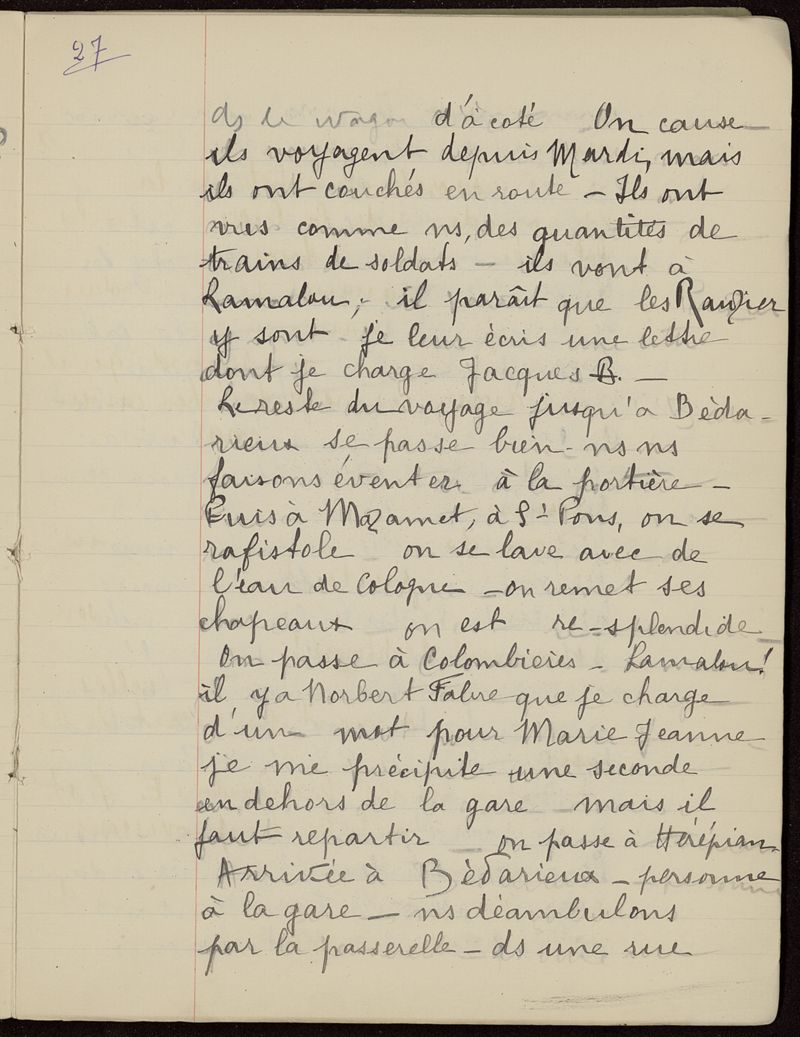 27
ds le wagon d'à coté On cause
ils voyagent depuis Mardi, mais
ils ont couchés en route – Ils ont
vus comme ns, des quantités de
trains de soldats – ils vont à
Lamalou, – il paraît que les Rauzier
y sont – je leur écris une lettre
dont je charge Jacques B. –
Le reste du voyage jusqu'a Bèda-
rieux se passe bien – ns ns
faisons éventer à la portière –
Puis à Mazamet, à St Pons, on se
rafistole on se lave avec de
l'eau de Cologne – on remet ses
chapeaux on est re-splendide
On passe à Colombières – Lamalou!
il y a Norbert Fabre que je charge
d'un mot pour Marie Jeanne
je me précipite une seconde
en dehors de la gare mais il
faut repartir – on passe à Hérépian
Arrivée à Bèdarieux – personne
à la gare – ns déambulons
par la passerelle – ds une rue